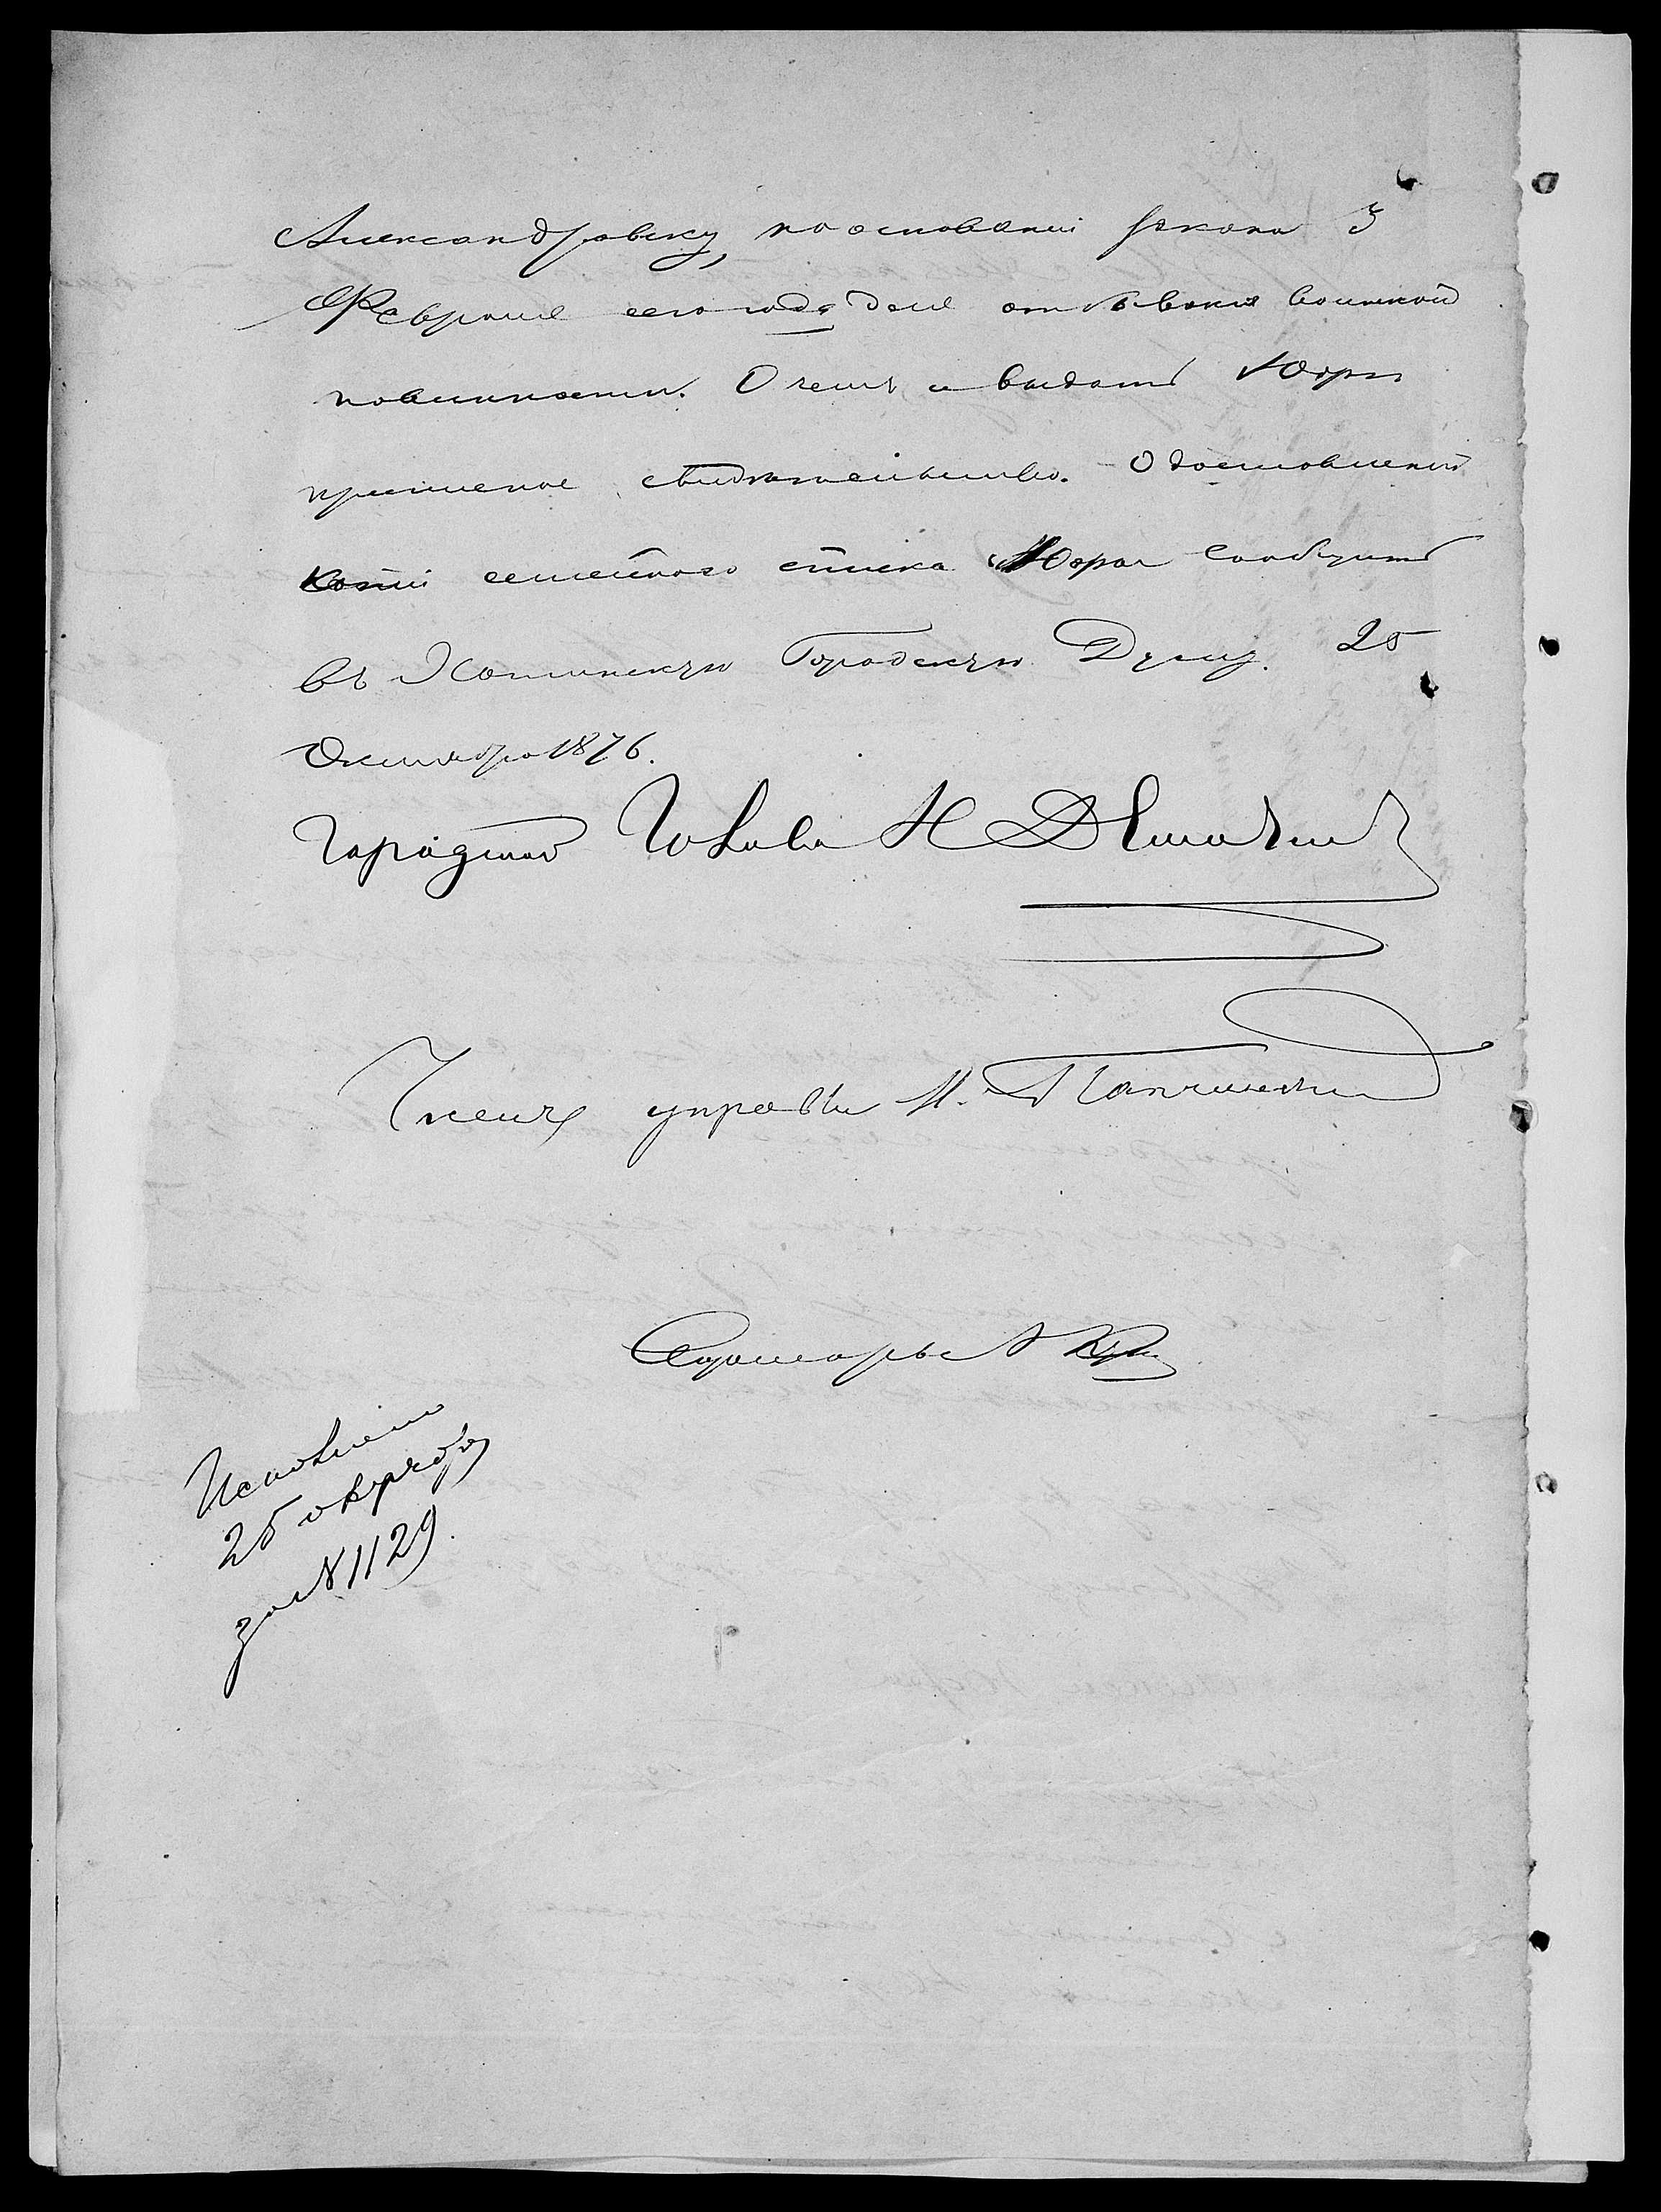 Александровску, на основаніи закона 3
Февраля сего года для отбыванія воинской
повинности. О чемъ и выдать Юфри
свидѣтельство. О доставленіи
копіи семейнаго списка Юфри сообщить
въ Хотинскую Городскую Думу. 25
Октября 1876.
Городской Голова Н
Членъ управы И.
Секретарь
Исполнено
25 октября
за №1129.